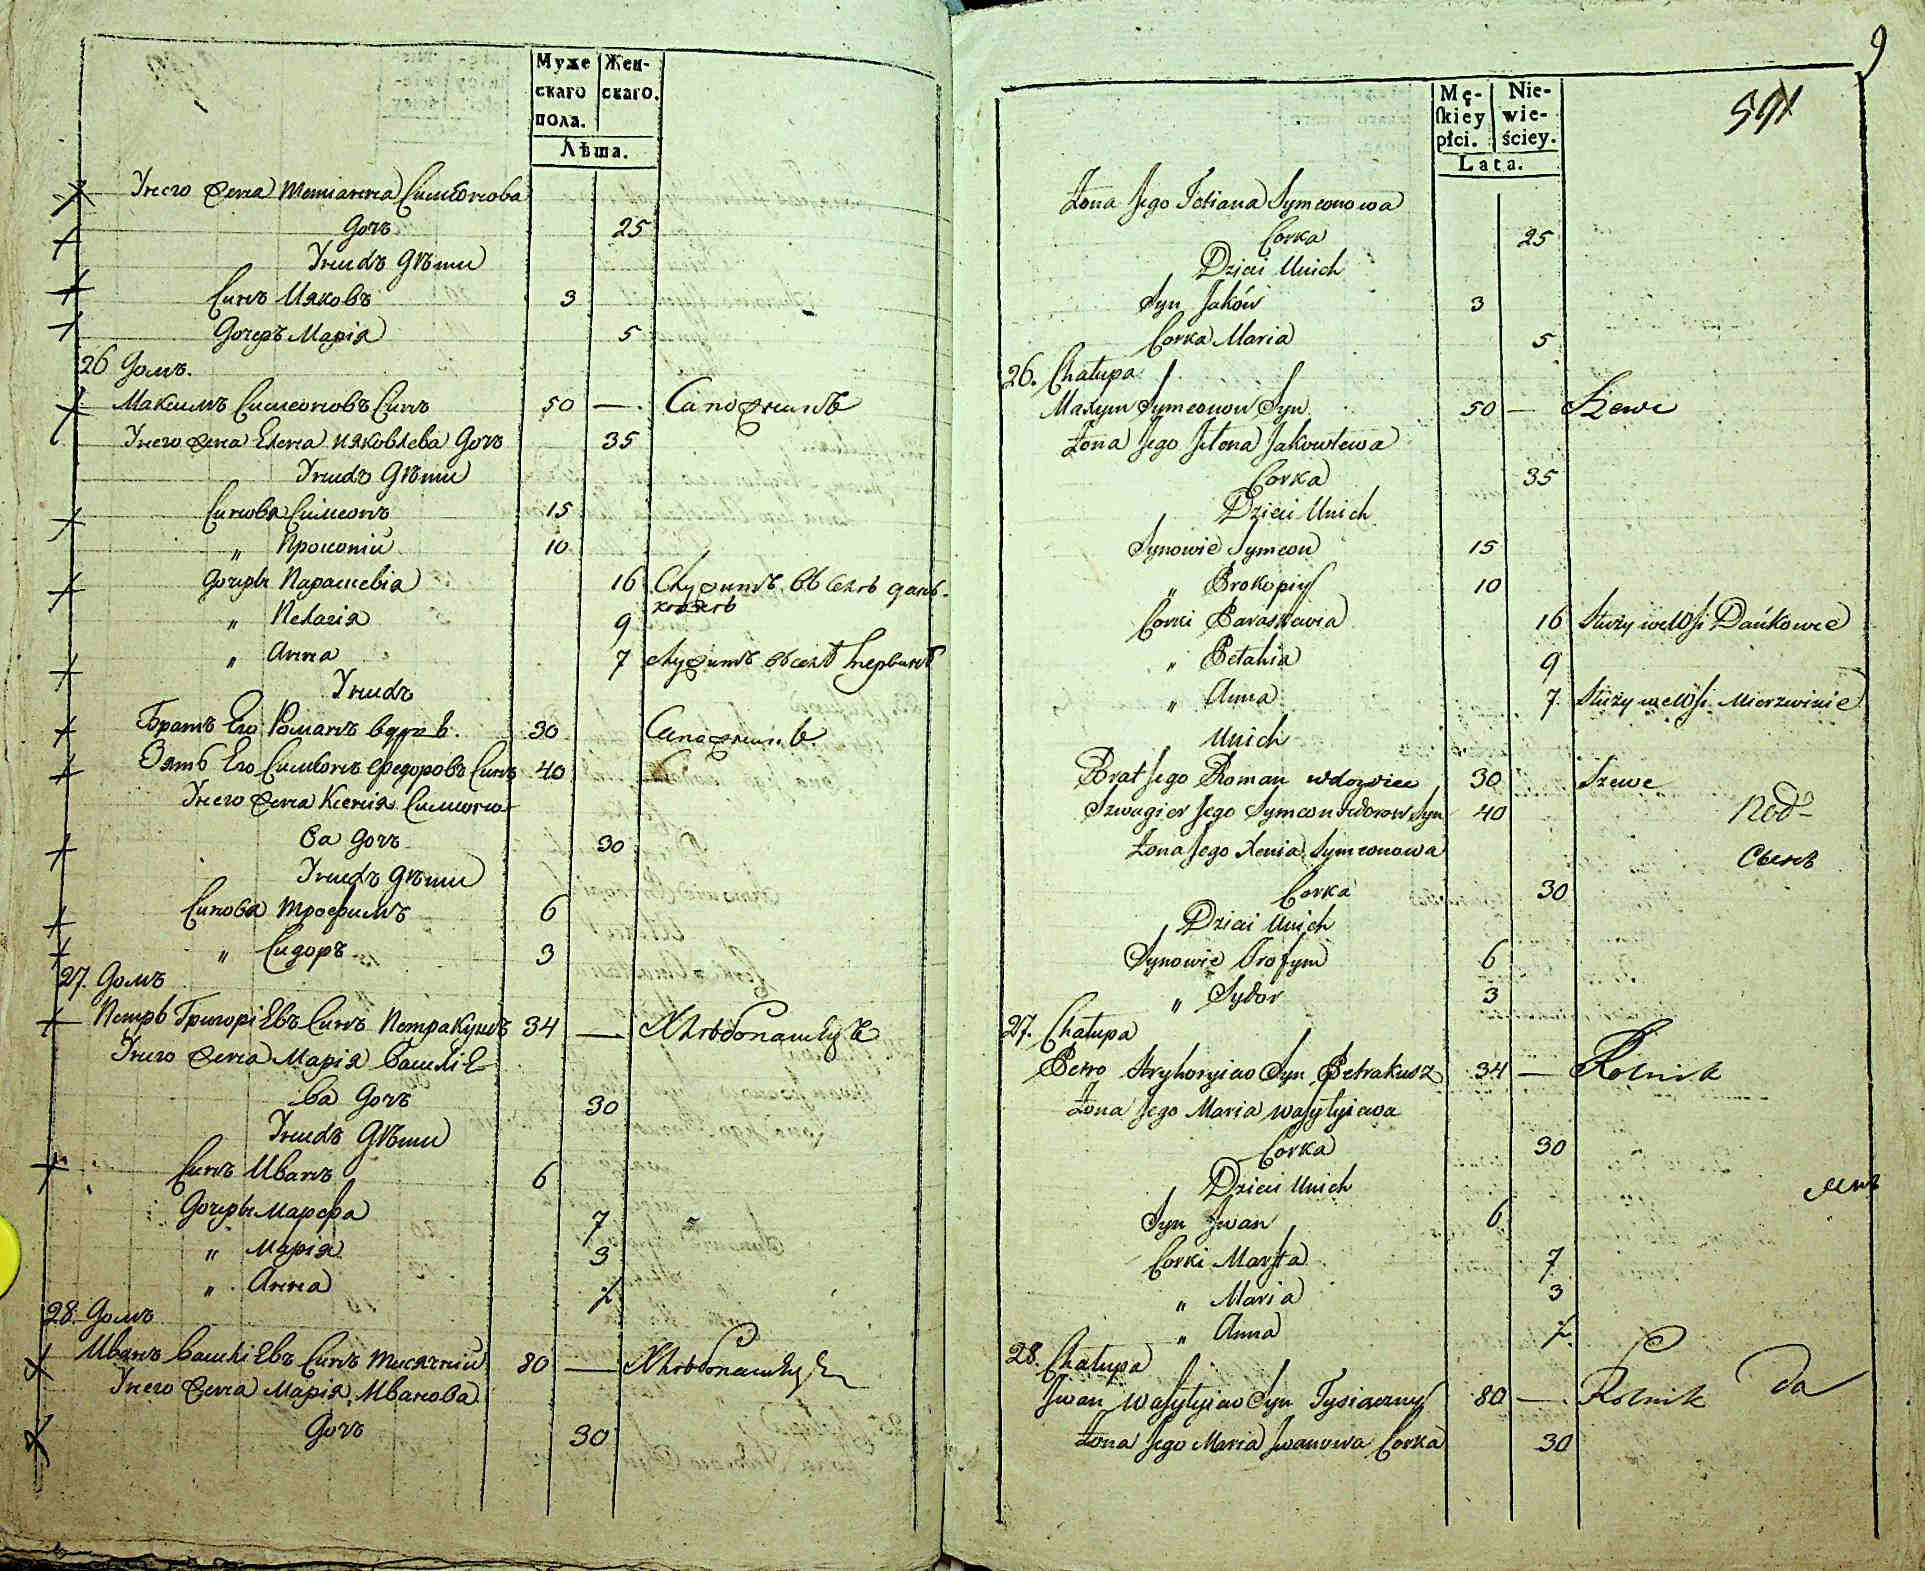 Муже
скаго
пола.
Жен-
скаго.
Лѣта.
У него жена Татіанна Симеонова
Дочь 25
У нихъ дѣти
Сынъ Іяковъ 3
Дочерь Марія 5
26 Домъ.
Максимъ Симеоновъ Сынъ 50 — Сапожникъ
У него жена Елена Іяковлева Дочь 35
У нихъ дѣти
Синова Симеонъ 15
„ Прокопій 10
Дочеры Параскевія 16 Служитъ въ селѣ Дань-
ковкѣ
„ Пелагія 9
„ Анна 7 служитъ въ селѣ
У нихъ
Братъ Его Романъ вдовъ. 30 Сапожникъ.
Зять Его Симеонъ Федоровъ Синъ 40
У него жена Ксенія Симеоно-
ва дочь 30
У нихъ дѣти
Синова Трофимъ 6
„ Сидоръ 3
27. Домъ
Петръ Григоріевъ Синъ Петракушъ 34 — Хлѣбопашецъ
У него жена Марія Василіе-
ва Дочь 30
У нихъ Дѣти
Синъ Иванъ 6
Дочеры Марфа 7
„ Марія 3
„ Анна
28. Домъ
Иванъ Василіевъ Синъ Тисячній 80 — Хлѣбопашецъ
У него жена Марія Иванова
Дочь 30
9
591
Mę-
skiey
płci.
Nie-
wie-
ściey.
Lata.
Żona Jego Tetiana Symeonowa
Corka 25
Dzieci Unich
Syn Jaków 3
Corka Maria 5
26. Chałupa
Maxym Symeonow Syn 50 — Szewc
Żona Jego Jełena Jakowlewa
Corka 35
Dzieci Unich
Synowie Symeon 15
„ Prokopiy 10
Corki Paraskewia 16 Służy we Wsi Dańkowce
„ Pelahia 9
„ Anna 7 Służy we Wsi Mierzwinie
Unich
Brat Jego Roman wdowiec 30 Szewc
Szwagier Jego Symeon Fedorow Syn 40
Żona Jego Xenia Symeonowa
Corka 30
Dzieci Unich
Synowie Trofym 6
„ Sydor 3
27. Chałupa
Petro Hryhoryiew Syn Petrakusz 34 — Rolnik
Żona Jego Maria Wasylyiewa
Corka 30
Dzieci Unich
Syn Jwan 6
Corki Marfta 7
„ Maria 3
„ Anna
28. Chałupa
Jwan Wasylyiew Syn Tysiaczny 80 — Rolnik
Żona Jego Maria Jwanowa Corka 30